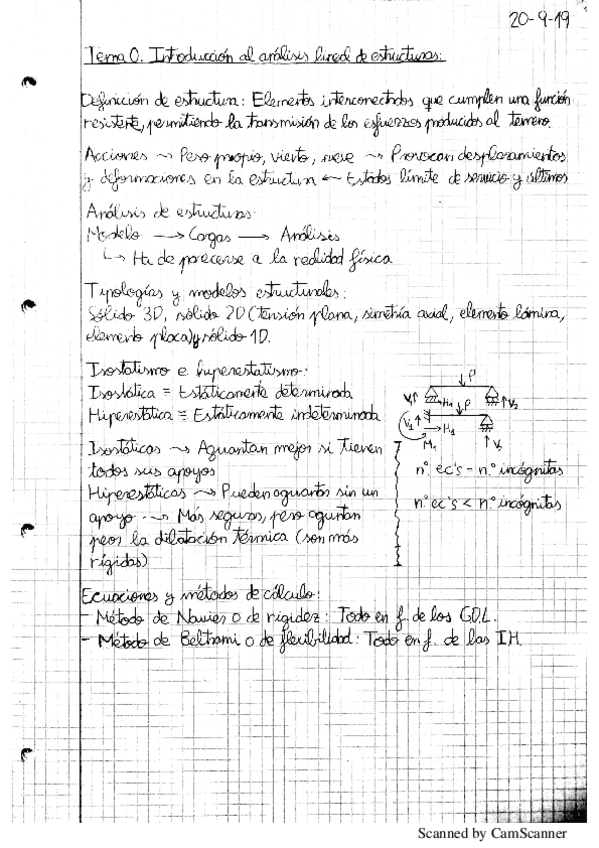 20-9-19
Tema 0. Introducción al análisis lineal de estructuras:
Definición de estructura: Elementos interconectados que cumplen una función
resistente, permitiendo la transmisión de los esfuerzos producidos al terreno.
Acciones → Peso propio, viento, nieve → Provocan desplazamientos
y deformaciones en la estructura ← Estados límite de servicio y últimos
Análisis de estructuras:
Modelo → Cargas → Análisis
↳ Ha de parecerse a la realidad física
Tipologías y modelos estructurales:
Sólido 3D, sólido 2D (tensión plana, simetría axial, elemento lámina,
elemento placa) y sólido 1D.
Isostatismo e hiperestatismo:
Isostática ≡ Estáticamente determinada
Hiperestática ≡ Estáticamente indeterminada
P
V1 H1 P V2
V1 H1
M1 V2
Isostáticas → Aguantan mejor si tienen
todos sus apoyos
nº ec's = nº incógnitas
Hiperestáticas → Pueden aguantar sin un
apoyo → Más seguras, pero aguantan
nº ec's < nº incógnitas
peor la dilatación térmica (son más
rígidas)
Ecuaciones y métodos de cálculo:
- Método de Navier o de rigidez: Todo en f. de los G.D.L.
- Método de Beltrami o de flexibilidad: Todo en f. de las I.H.
Scanned by CamScanner